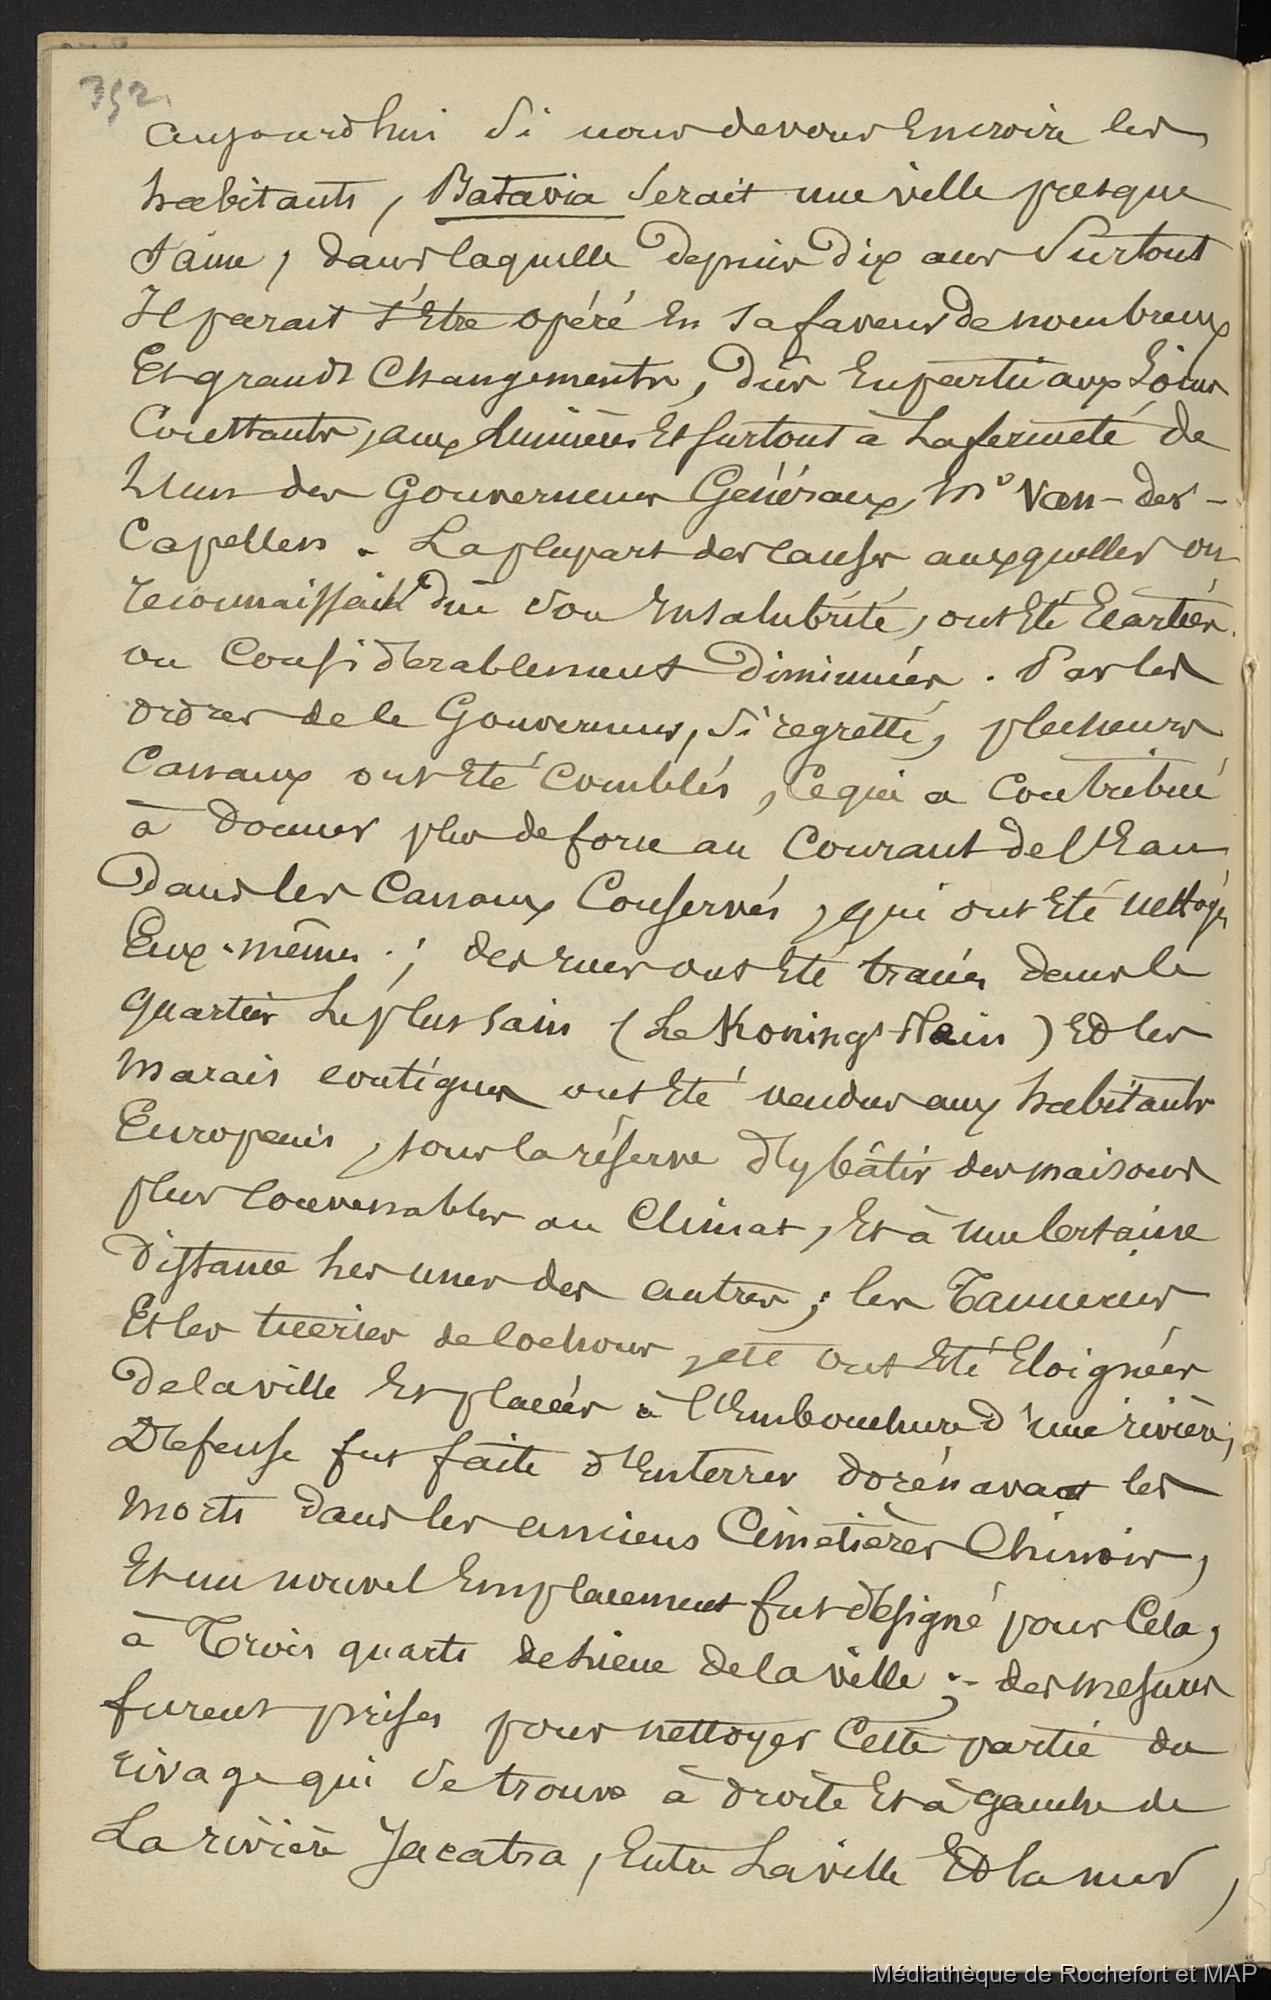 352.
aujourd'hui Si nous devons En croire les
habitants, Batavia Serait une ville presque
Saine, dans laquelle Depuis Dix ans Surtout
Il parait s'Etre opéré En Sa faveur De nombreux
Et grands Changements, Dûs En partie aux Soins
Constants, aux lumières Et surtout à La fermeté De
L'un des Gouverneurs Généraux, Mr Van-der-
Capellen. La plupart des causes auxquelles on
reconnaissait Dûe Son Insalubrité, ont Eté Ecartées
ou Considérablement Diminuées. Par les
ordres de le Gouverneur, Si regretté, plusieurs
Canaux ont Eté Comblés, Ce qui a Contribué
à Donner plus de force au Courant de l'Eau
Dans les Canaux Conservés, qui ont Eté nettoyés
Eux-mêmes; des rues ont Eté tracées dans le
quartier Le plus sain (Le Koning's Plein) Et les
marais contigues ont Eté vendus aux habitants
Européens, sous la réserve d'y bâtir des maisons
plus Convenables au Climat, Et à une Certaine
Distance Les unes des autres; les Tanneries
Et les tueries de cochons, etc ont Eté Eloignées
De la ville Et placées à l'Embouchure D'une rivière;
Défense fut faite d'Enterrer dorénavant les
morts Dans les anciens Cimetières Chinois,
Et un nouvel Emplacement fut désigné pour Cela,
à Trois quarts de Lieue De la ville; - des mesures
furent prises pour nettoyer Cette partie du
rivage qui Se trouve à droite Et à gauche de
La rivière Jacatra, Entre La ville Et la mer,
Médiathèque de Rochefort et MAP